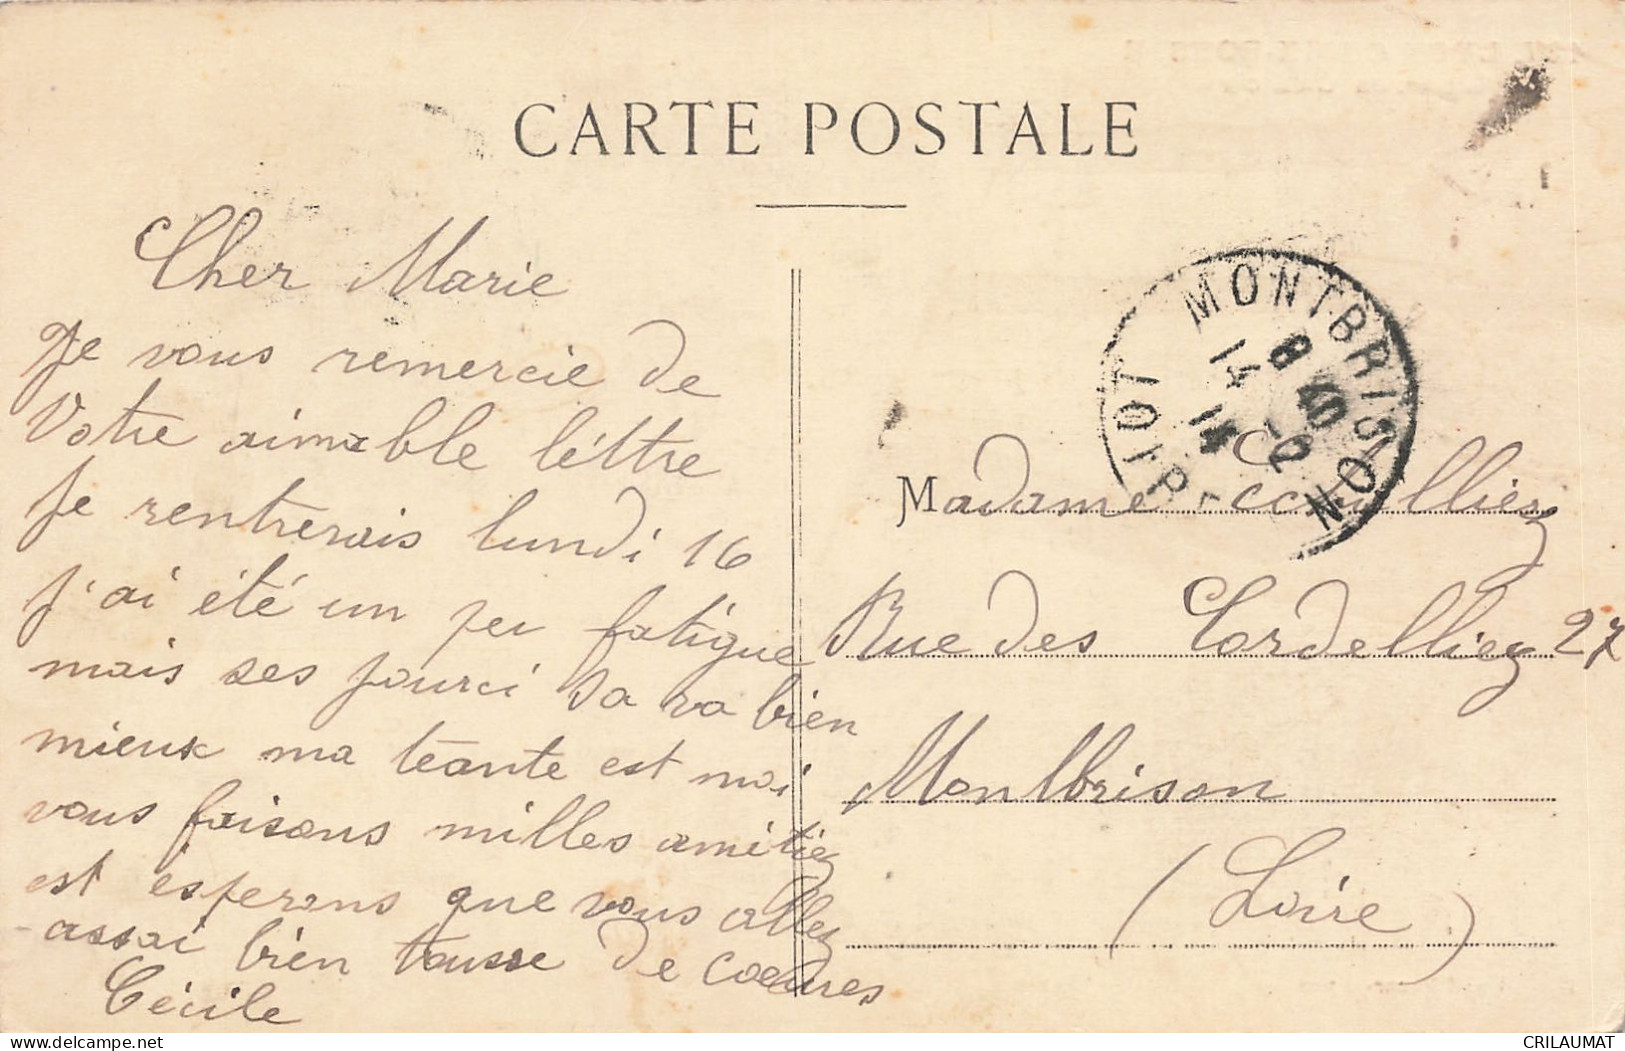 CARTE POSTALE
Cher Marie
Je vous remercie de
Votre aimable léttre
Je rentrerais lundi 16
j'ai été un peu fatigue
mais ses jourci sa va bien
mieux ma teante est moi
vous faisons milles amitiez
est esperons que vous allez
assai bien tousse de coeures
Cécile
MONTBRISON
8 40
14 - 2
14
Madame
Rue des Cordelliez 27
Montbrison
(Loire)
CRILAUMAT